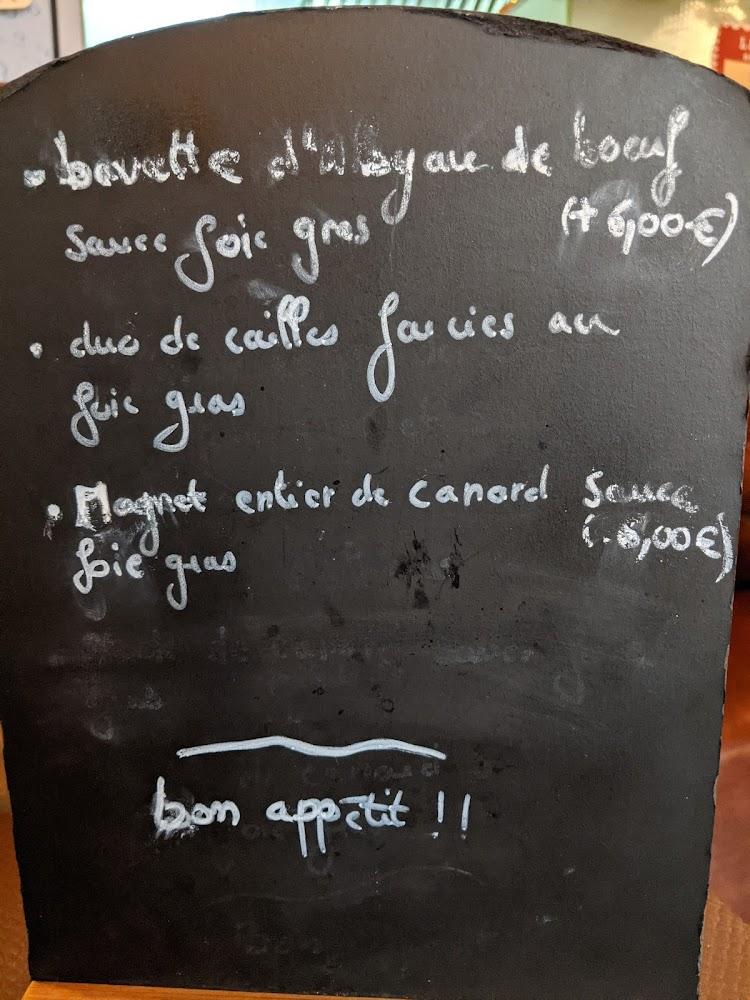 • bavette d'aloyau de boeuf
sauce foie gras (+ 6,00€)
• duo de cailles farcies au
foie gras
• Magret entier de canard sauce
foie gras (+ 6,00€)
bon appétit !!